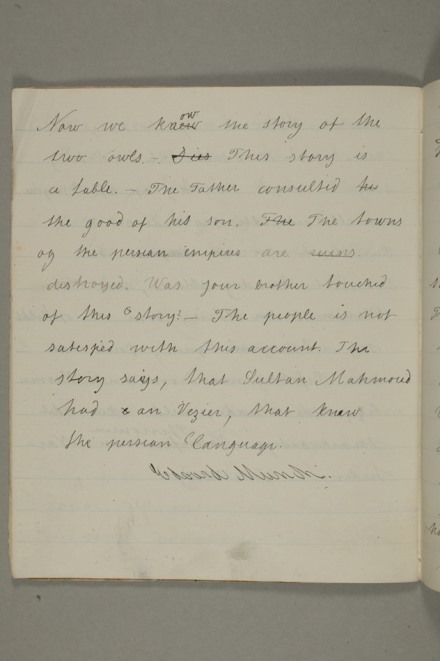 Now we know the story of the
two owls. – This story is
a fable. – The Father consulted
the good of his son. The towns
of the persian empires are ruins
destroyed. Was your brother touched
of this story? – The people is not
satisfied with this account. The
story says, that Sultan Mahmoud
had an Vezier, that knew
the persian language.